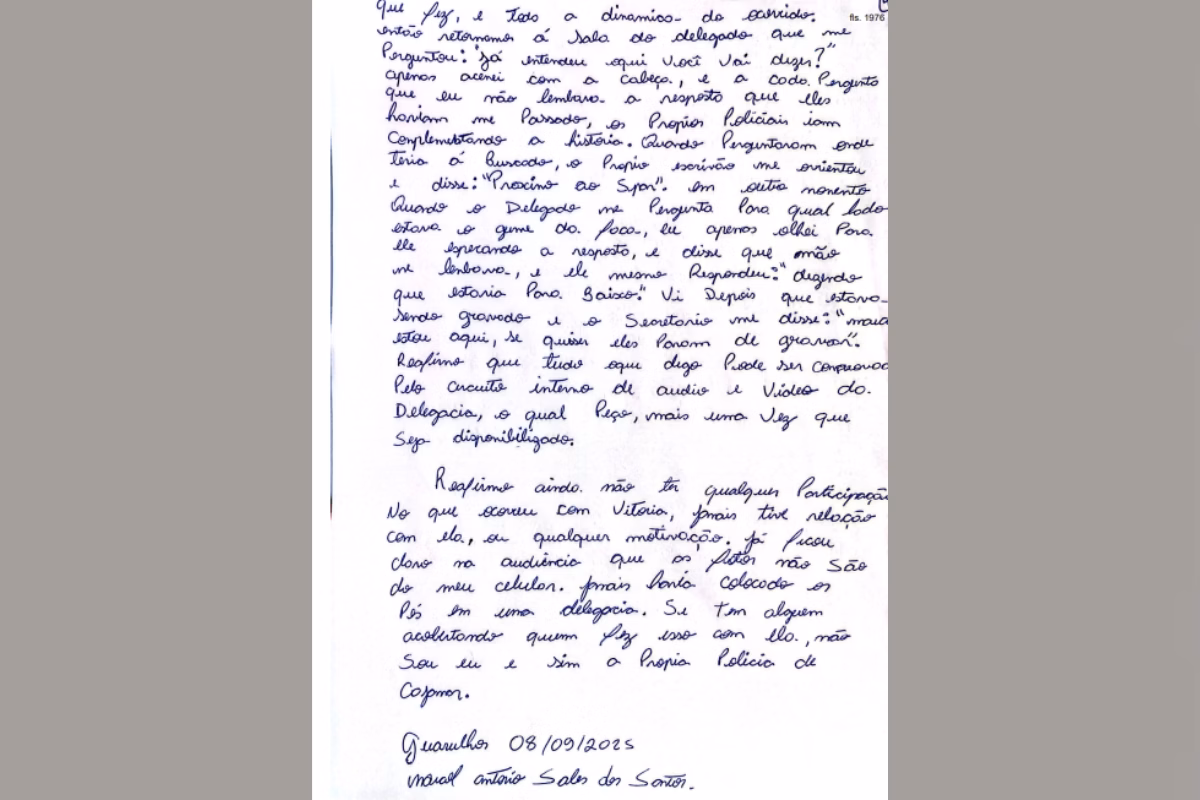 que fez, e todo a dinamica do ocorrido.
fls. 1976
então retornamos á sala do delegado que me
Perguntou: "já entendeu oqui você vai dizer?"
apenas acenei com a cabeça, e a cada Pergunta
que eu não lembava a resposta que eles
haviam me Passado, os Propios Policiais iam
Complementando a história. Quando Perguntaram onde
teria á Buscado, o Propio escrivão me orientou
e disse: "Proximo ao Supor". em outro momento
Quando o Delegado me Pergunta Para qual lado
estava o gume da faca, eu apenas olhei Para
ele esperando a resposta, e disse que não
me lembava, e ele mesmo Respondeu: "dizendo
que estaria Para Baixo." Vi Depois que estava
sendo gravado e o Secretario me disse:
estou aqui, se quiser eles Param de gravar".
Reafirmo que tudo oque digo Pode ser
Pelo circuito interno de audio e Video da
Delegacia, o qual Peço, mais uma Vez que
Seja disponibilizado.
Reafirmo ainda não ter qualquer Participação
No que ocorreu com Vitoria, jamais tive relação
com ela, ou qualquer motivação. já ficou
claro na audiência que as fotos não São
do meu celular. jamais havia colocado os
Pés em uma delegacia. Se tem alguem
acobertando quem fez isso com ela, não
Sou eu e sim a Propia Policia de
Cajamar.
Guarulhos 08/09/2025
antonio Sales dos Santos.